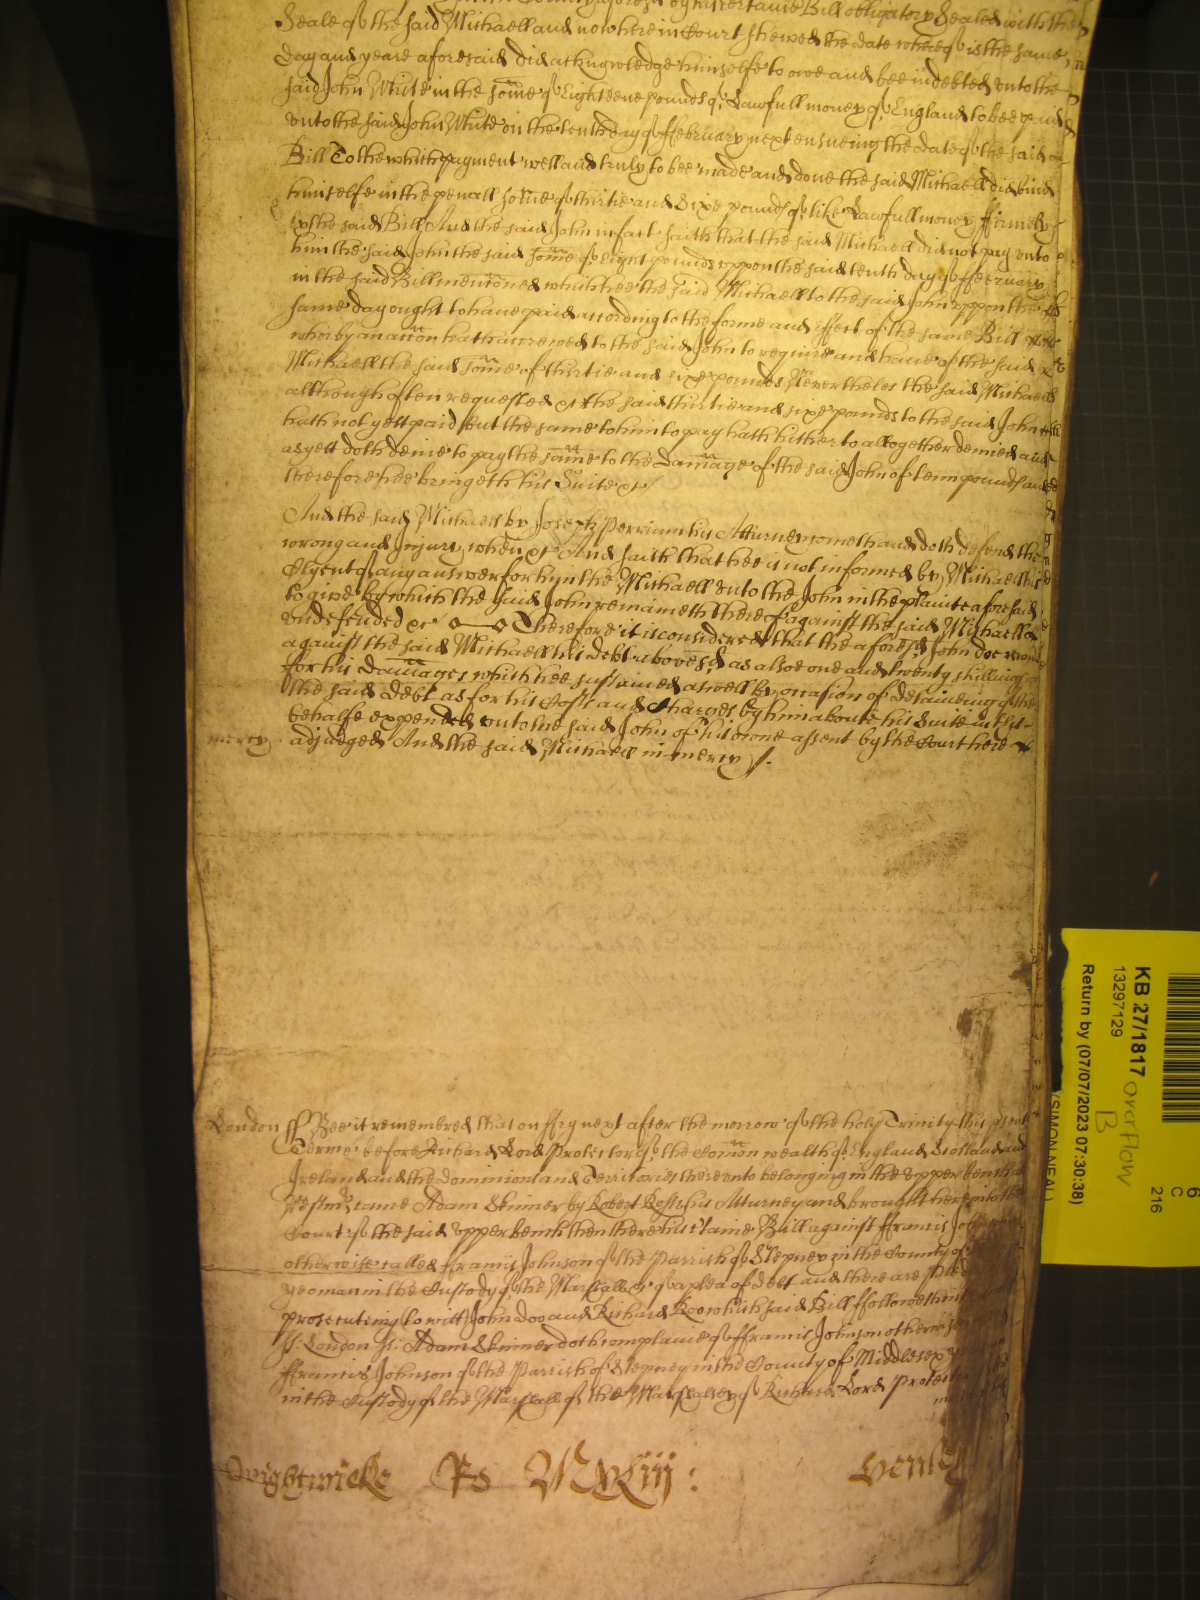 County aforesaid by his certaine Bill obligatory Sealed with the
Seale of the said Michaell and now here in Court shewed the date whereof is the same
day and yeare aforesaid did acknowledge himselfe to owe and bee indebted unto the
said John White in the some of Eighteene pounds of Lawfull money of England to bee paid
unto the said John White on the tenth day of ffebruary next ensueing the date of the said
Bill To the which payment well and truly to bee made and done the said Michaell did bind
himselfe in the penall some of thirtie and sixe pounds of like Lawfull money ffirmely
by the said Bill And the said John in fact saith that the said Michaell did not pay unto
him the said John the said some of Eight pounds uppon the said tenth day of ffebruary
in the said Bill mencōned which hee the said Michaell to the said John uppon the
same day ought to have paid according to the forme and effect of the same Bill
whereby an accōn hath accrewed to the said John to require and have of the said
Michaell the said some of thirtie and sixe pounds Nevertheles the said Michaell
although often requested &c the said thirtie and sixe pounds to the said John
hath not yett paid but the same to him to pay hath hitherto altogether denied and
as yett doth denie to pay the same to the Damage of the said John of tenn pounds and
therefore hee bringeth his Suite &c
And the said Michaell by Joseph Perriam his Atturney cometh and doth defend the
wrong and Injury when &c And saith that hee is not informed by Michaell
of any answer for him the Michaell unto the John in the plainte aforesaid
to give by which the said John remaineth thereof against the said Michaell
undefended &c Therefore it is considered that the aforesd John doe recover
against the said Michaell his debt abovesd as alsoe one and twenty shillings
for his damages which hee sustained aswell by occasion of detaineing of the
the said debt as for his Costs and Charges by him about his Suite in this
behalfe expended unto the said John of his owne assent by the Court here
mercy adjudged And the said Michaell in mercy &c.
London ss Bee it remembred that on ffry next after the morrow of the holy Trinity this psent
Terme before Richard Lord Protector of the Comon wealth of England Scotland and
Ireland and the dominions and Territories thereunto belonging in the upper bench
Westmr came Adam Skinner by Robert Ross his Atturney and brought here into the
Court of the said upper bench then there his certaine Bill against ffrancis Johnson
otherwise called ffrancis Johnson of the Parrish of Stepney in the County of
yeoman in the Custody of the Marshall &c of a plea of debt and there are pledges
prosecuting (to witt) John Doo and Richard Roo which said Bill ffolloweth in
ss London ss. Adam Skinner doth complaine of ffrancis Johnson otherwise
ffrancis Johnson of the Parrish of Stepney in the County of Middlesex
in the Custody of the Marshall of the Marshalsey of Richard Lord Protector
Wightwicke Ro MXLiij : Henley
KB 27/1817
13297129
Return by (07/07/2023 07:30:38)
(SIMON NEAL)
overflow
B
C
216